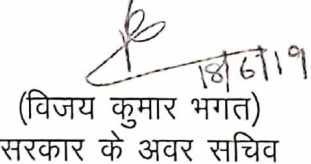 18/6/19
(विजय कुमार भगत)
सरकार के अवर सचिव